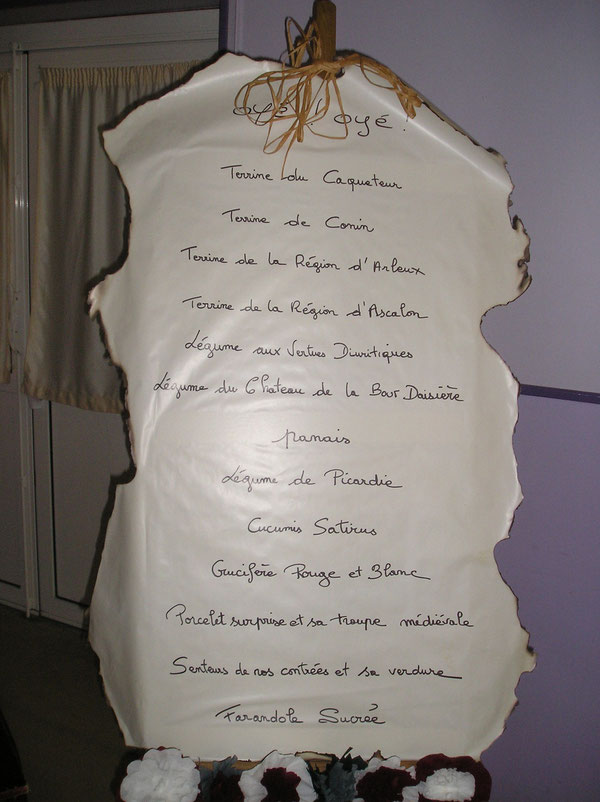 oyé ! oyé !
Terrine du Caqueteur
Terrine de Conin
Terrine de la Région d'Arleux
Terrine de la Région d'Ascalon
Légume aux Vertues Diuritiques
Légume du Chateau de la Bour Daisière
panais
Légume de Picardie
Cucumis Satirus
Crucifère Rouge et Blanc
Porcelet surprise et sa troupe médiévale
Senteurs de nos contrées et sa verdure
Farandole Sucrée